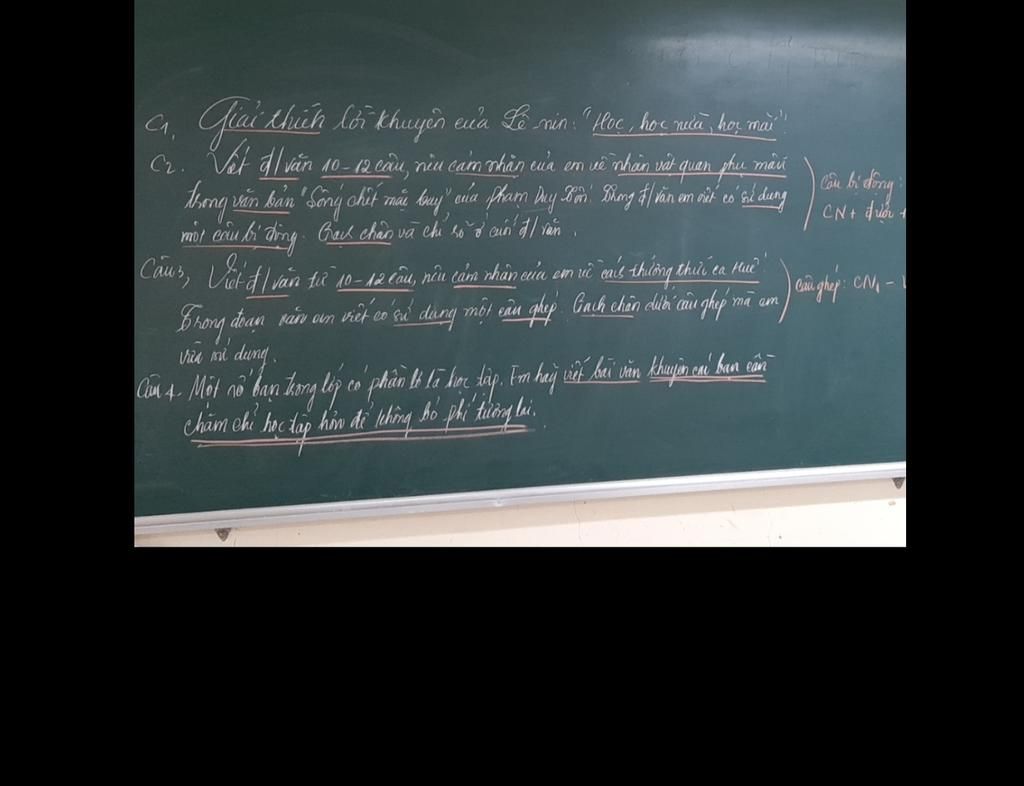 C1, Giải thích lời khuyên của Lê-nin: "Học, học nữa, học mãi"!
C2. Viết đ/văn 10-12 câu, nêu cảm nhận của em về nhân vật quan phụ mẫu
trong văn bản "Sống chết mặc bay" của Phạm Duy Tốn. Trong đ/văn em viết có sử dụng
một câu bị động. Gạch chân và chỉ rõ ở cuối đ/văn.
câu bị động:
CN + được +
Câu 3, Viết đ/văn từ 10-12 câu, nêu cảm nhận của em về cách thưởng thức ca Huế.
Trong đoạn văn em viết có sử dụng một câu ghép. Gạch chân dưới câu ghép mà em
vừa sử dụng.
câu ghép: CN1 -
Câu 4. Một số bạn trong lớp có phần lơ là học tập. Em hãy viết bài văn khuyên các bạn cần
chăm chỉ học tập hơn để không bỏ phí tương lai.